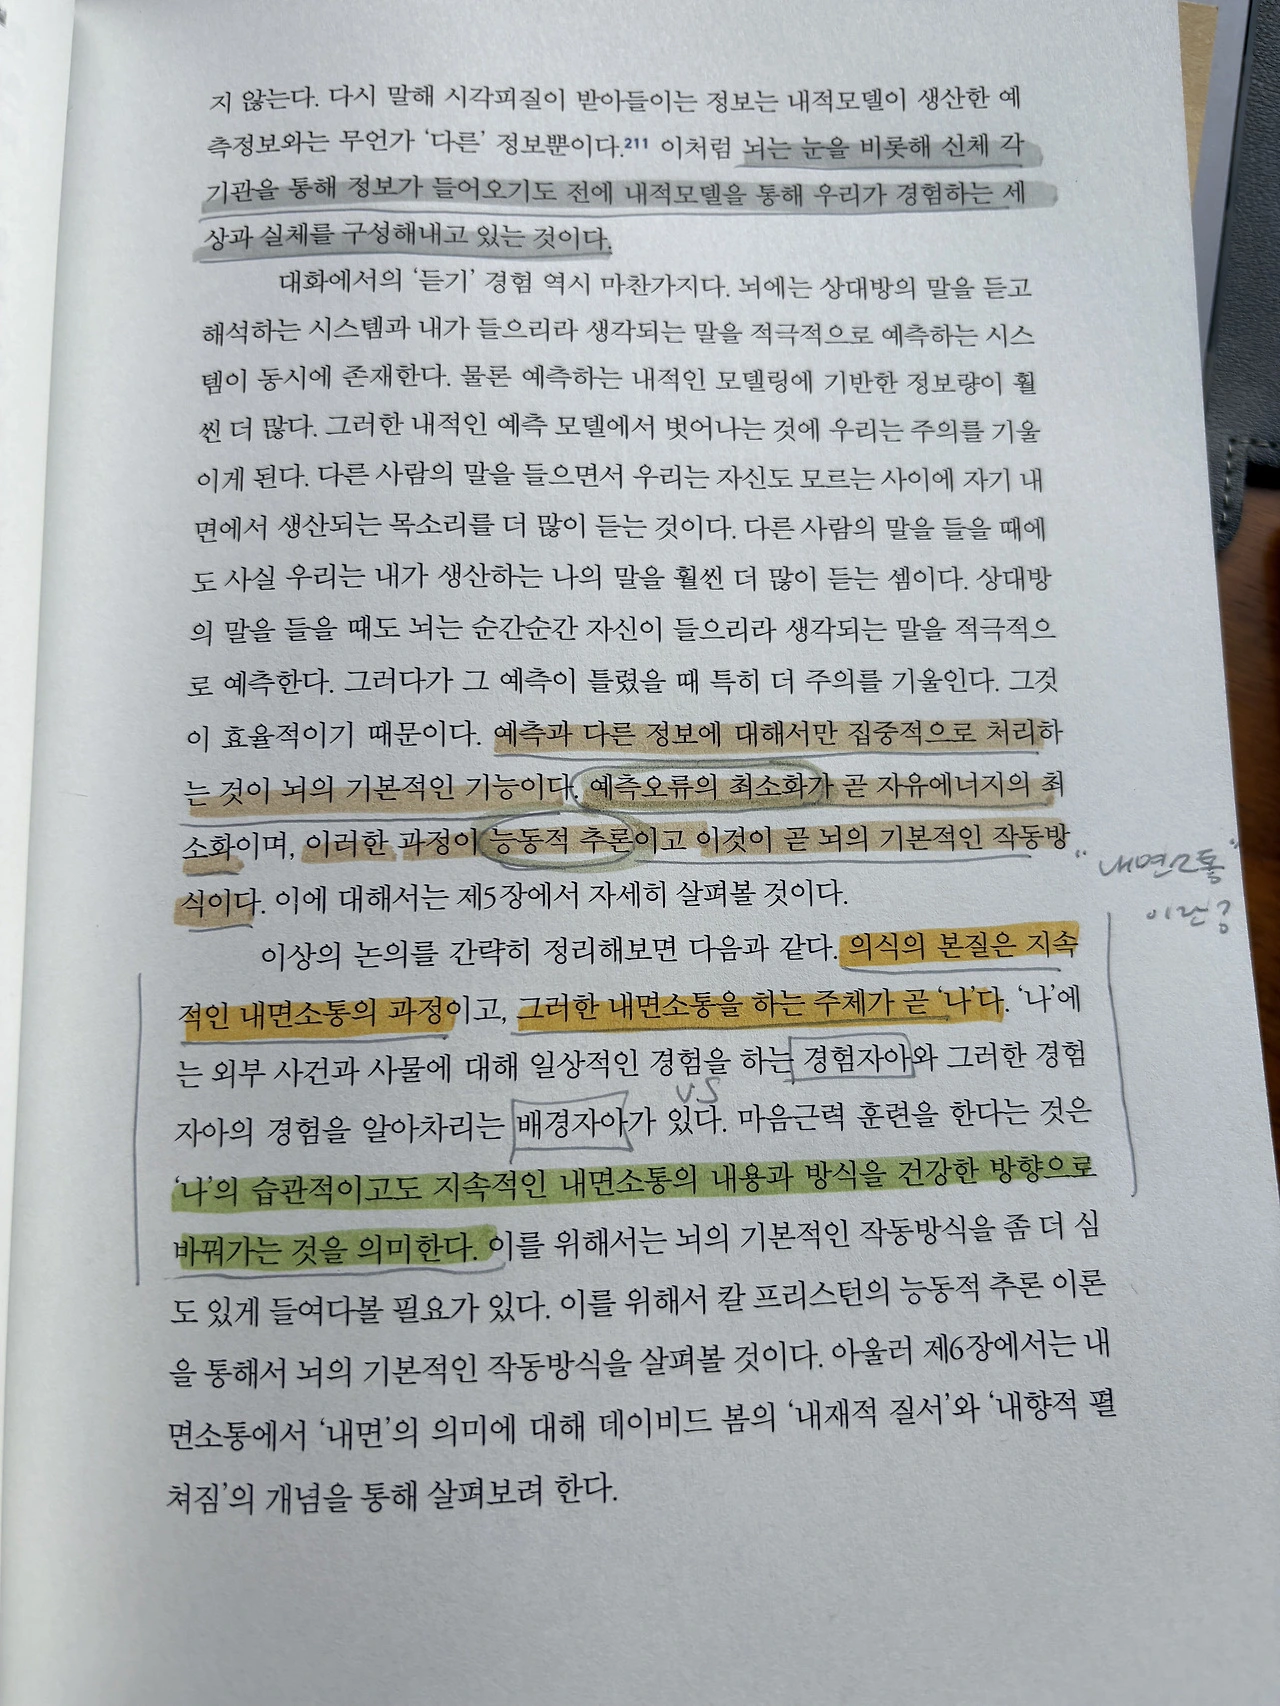 지 않는다. 다시 말해 시각피질이 받아들이는 정보는 내적모델이 생산한 예
측정보와는 무언가 ‘다른’ 정보뿐이다.211 이처럼 뇌는 눈을 비롯해 신체 각
기관을 통해 정보가 들어오기도 전에 내적모델을 통해 우리가 경험하는 세
상과 실체를 구성해내고 있는 것이다.
대화에서의 ‘듣기’ 경험 역시 마찬가지다. 뇌에는 상대방의 말을 듣고
해석하는 시스템과 내가 들으리라 생각되는 말을 적극적으로 예측하는 시스
템이 동시에 존재한다. 물론 예측하는 내적인 모델링에 기반한 정보량이 훨
씬 더 많다. 그러한 내적인 예측 모델에서 벗어나는 것에 우리는 주의를 기울
이게 된다. 다른 사람의 말을 들으면서 우리는 자신도 모르는 사이에 자기 내
면에서 생산되는 목소리를 더 많이 듣는 것이다. 다른 사람의 말을 들을 때에
도 사실 우리는 내가 생산하는 나의 말을 훨씬 더 많이 듣는 셈이다. 상대방
의 말을 들을 때도 뇌는 순간순간 자신이 들으리라 생각되는 말을 적극적으
로 예측한다. 그러다가 그 예측이 틀렸을 때 특히 더 주의를 기울인다. 그것
이 효율적이기 때문이다. 예측과 다른 정보에 대해서만 집중적으로 처리하
는 것이 뇌의 기본적인 기능이다. 예측오류의 최소화가 곧 자유에너지의 최
소화이며, 이러한 과정이 능동적 추론이고 이것이 곧 뇌의 기본적인 작동방
식이다. 이에 대해서는 제5장에서 자세히 살펴볼 것이다.
"내면소통"
이란?
이상의 논의를 간략히 정리해보면 다음과 같다. 의식의 본질은 지속
적인 내면소통의 과정이고, 그러한 내면소통을 하는 주체가 곧 ‘나’다. ‘나’에
는 외부 사건과 사물에 대해 일상적인 경험을 하는 경험자아와 그러한 경험
VS
자아의 경험을 알아차리는 배경자아가 있다. 마음근력 훈련을 한다는 것은
‘나’의 습관적이고도 지속적인 내면소통의 내용과 방식을 건강한 방향으로
바꿔가는 것을 의미한다. 이를 위해서는 뇌의 기본적인 작동방식을 좀 더 심
도 있게 들여다볼 필요가 있다. 이를 위해서 칼 프리스턴의 능동적 추론 이론
을 통해서 뇌의 기본적인 작동방식을 살펴볼 것이다. 아울러 제6장에서는 내
면소통에서 ‘내면’의 의미에 대해 데이비드 봄의 ‘내재적 질서’와 ‘내향적 펼
쳐짐’의 개념을 통해 살펴보려 한다.